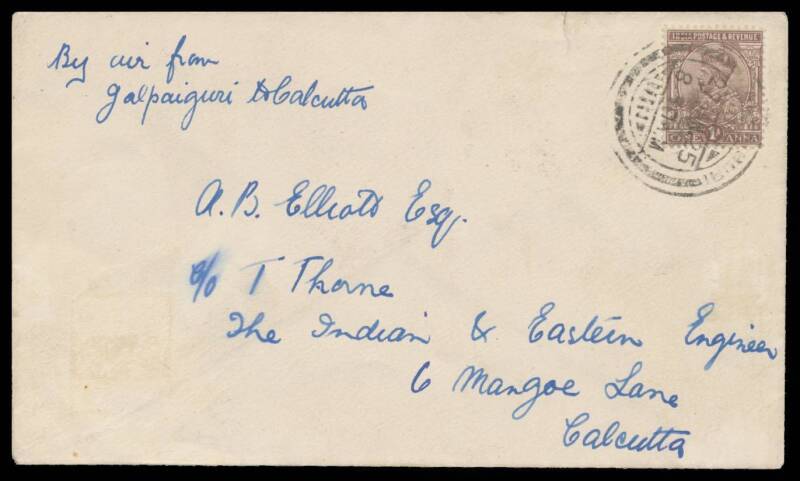 By air from
Jalpaiguri to Calcutta
INDIA POSTAGE & REVENUE
ONE 1A ANNA
25
A.B. Elliott Esq.
c/o T Thorne
The Indian & Eastern Engineer
6 Mangoe Lane
Calcutta